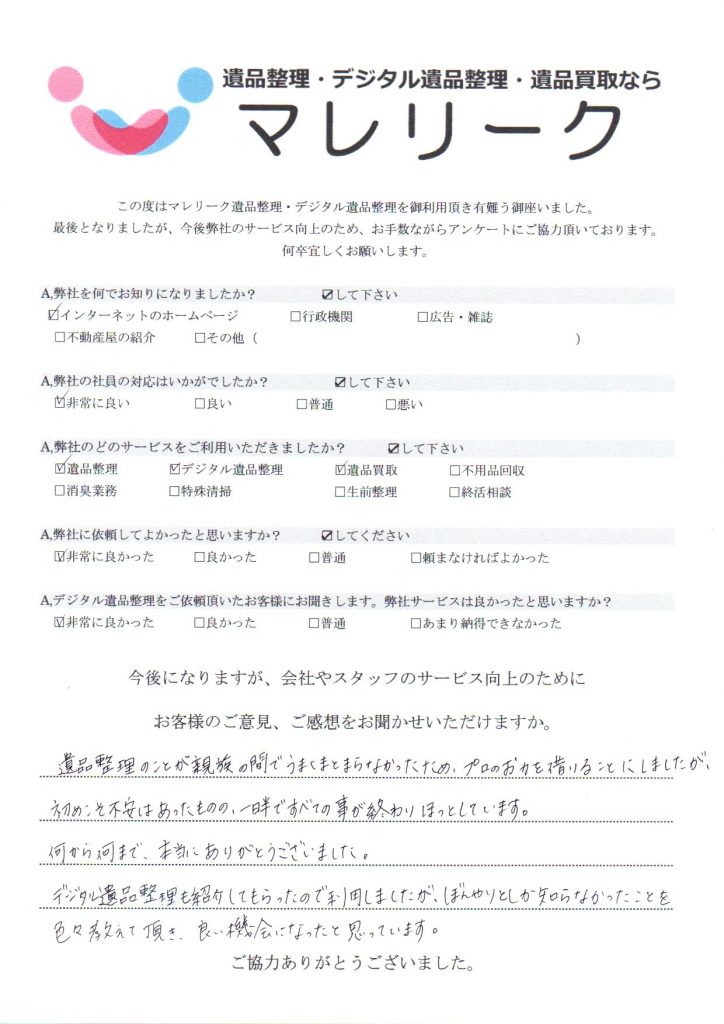 遺品整理・デジタル遺品整理・遺品買取なら
マレリーク
この度はマレリーク遺品整理・デジタル遺品整理を御利用頂き有難う御座いました。
最後となりましたが、今後弊社のサービス向上のため、お手数ながらアンケートにご協力頂いております。
何卒宜しくお願いします。
A,弊社を何でお知りになりましたか？ ☑して下さい
☑インターネットのホームページ □行政機関 □広告・雑誌
□不動産屋の紹介 □その他（ ）
A,弊社の社員の対応はいかがでしたか？ ☑して下さい
☑非常に良い □良い □普通 □悪い
A,弊社のどのサービスをご利用いただきましたか？ ☑して下さい
☑遺品整理 ☑デジタル遺品整理 ☑遺品買取 □不用品回収
□消臭業務 □特殊清掃 □生前整理 □終活相談
A,弊社に依頼してよかったと思いますか？ ☑してください
☑非常に良かった □良かった □普通 □頼まなければよかった
A,デジタル遺品整理をご依頼頂いたお客様にお聞きします。弊社サービスは良かったと思いますか？
☑非常に良かった □良かった □普通 □あまり納得できなかった
今後になりますが、会社やスタッフのサービス向上のために
お客様のご意見、ご感想をお聞かせいただけますか。
遺品整理のことが親族の間でうまくまとまらなかったため、プロのお力を借りることにしましたが、
初めこそ不安はあったものの、一日半ですべての事が終わりほっとしています。
何から何まで、本当にありがとうございました。
デジタル遺品整理も紹介してもらったので利用しましたが、ぼんやりとしか知らなかったことを
色々教えて頂き、良い機会になったと思っています。
ご協力ありがとうございました。